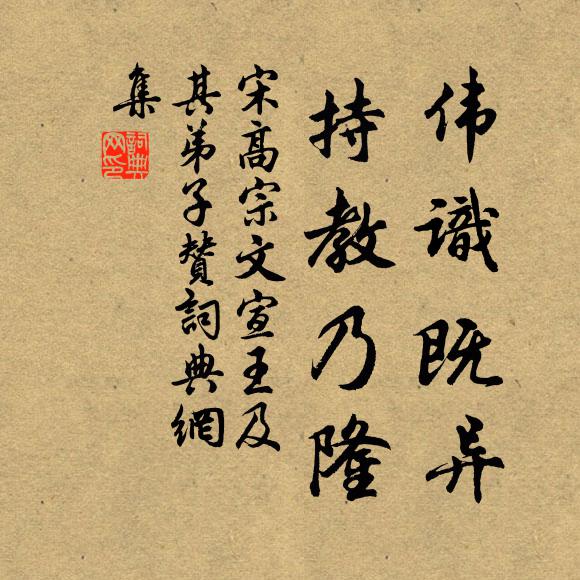 伟識既异
持教乃隆
宋高宗文宣王及
其弟子赞詞典網
集
詞典
网印